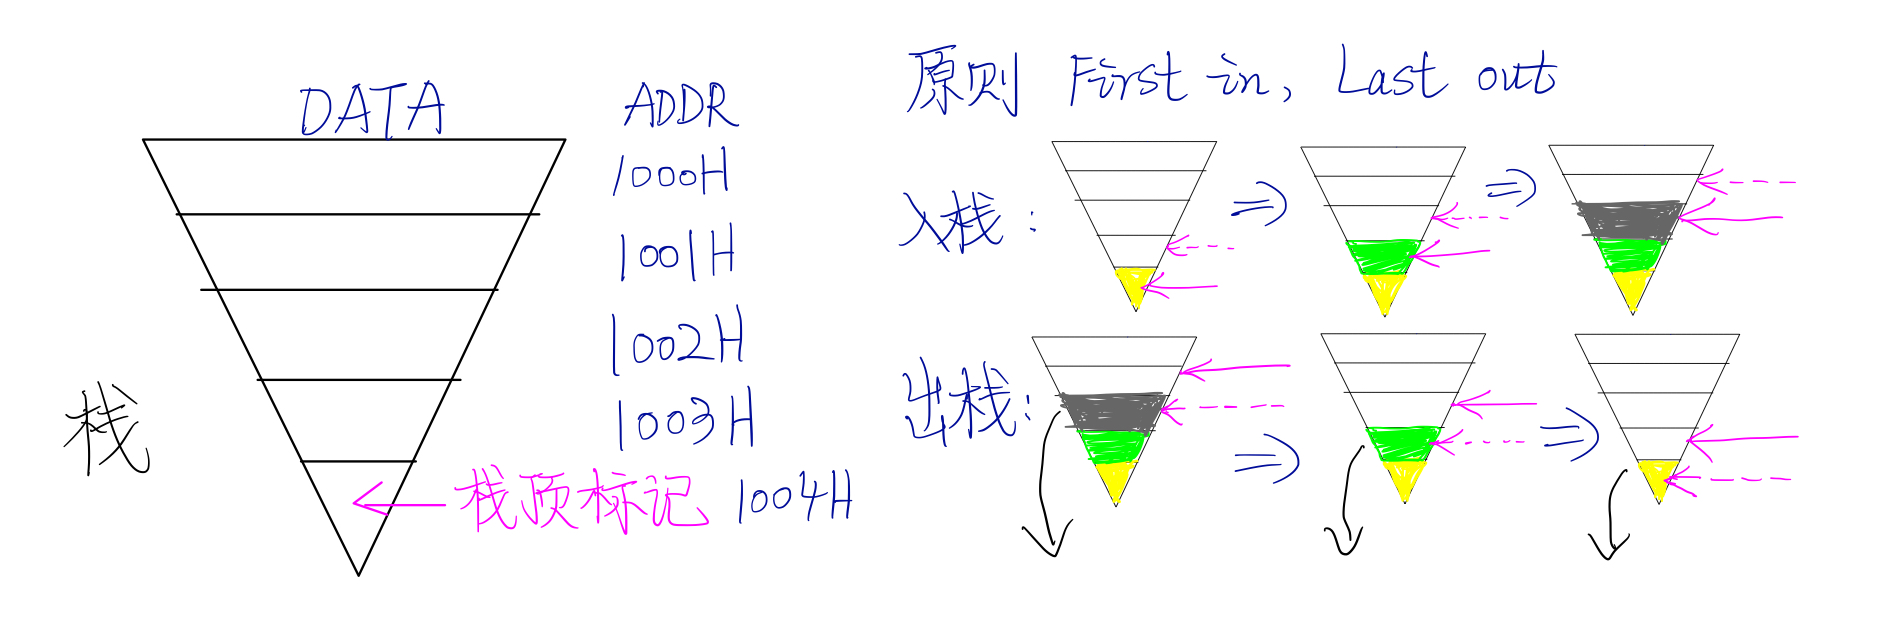 DATA
ADDR
1000H
1001H
1002H
1003H
栈顶标记 1004H
栈
原则 First in, Last out
入栈:
出栈: